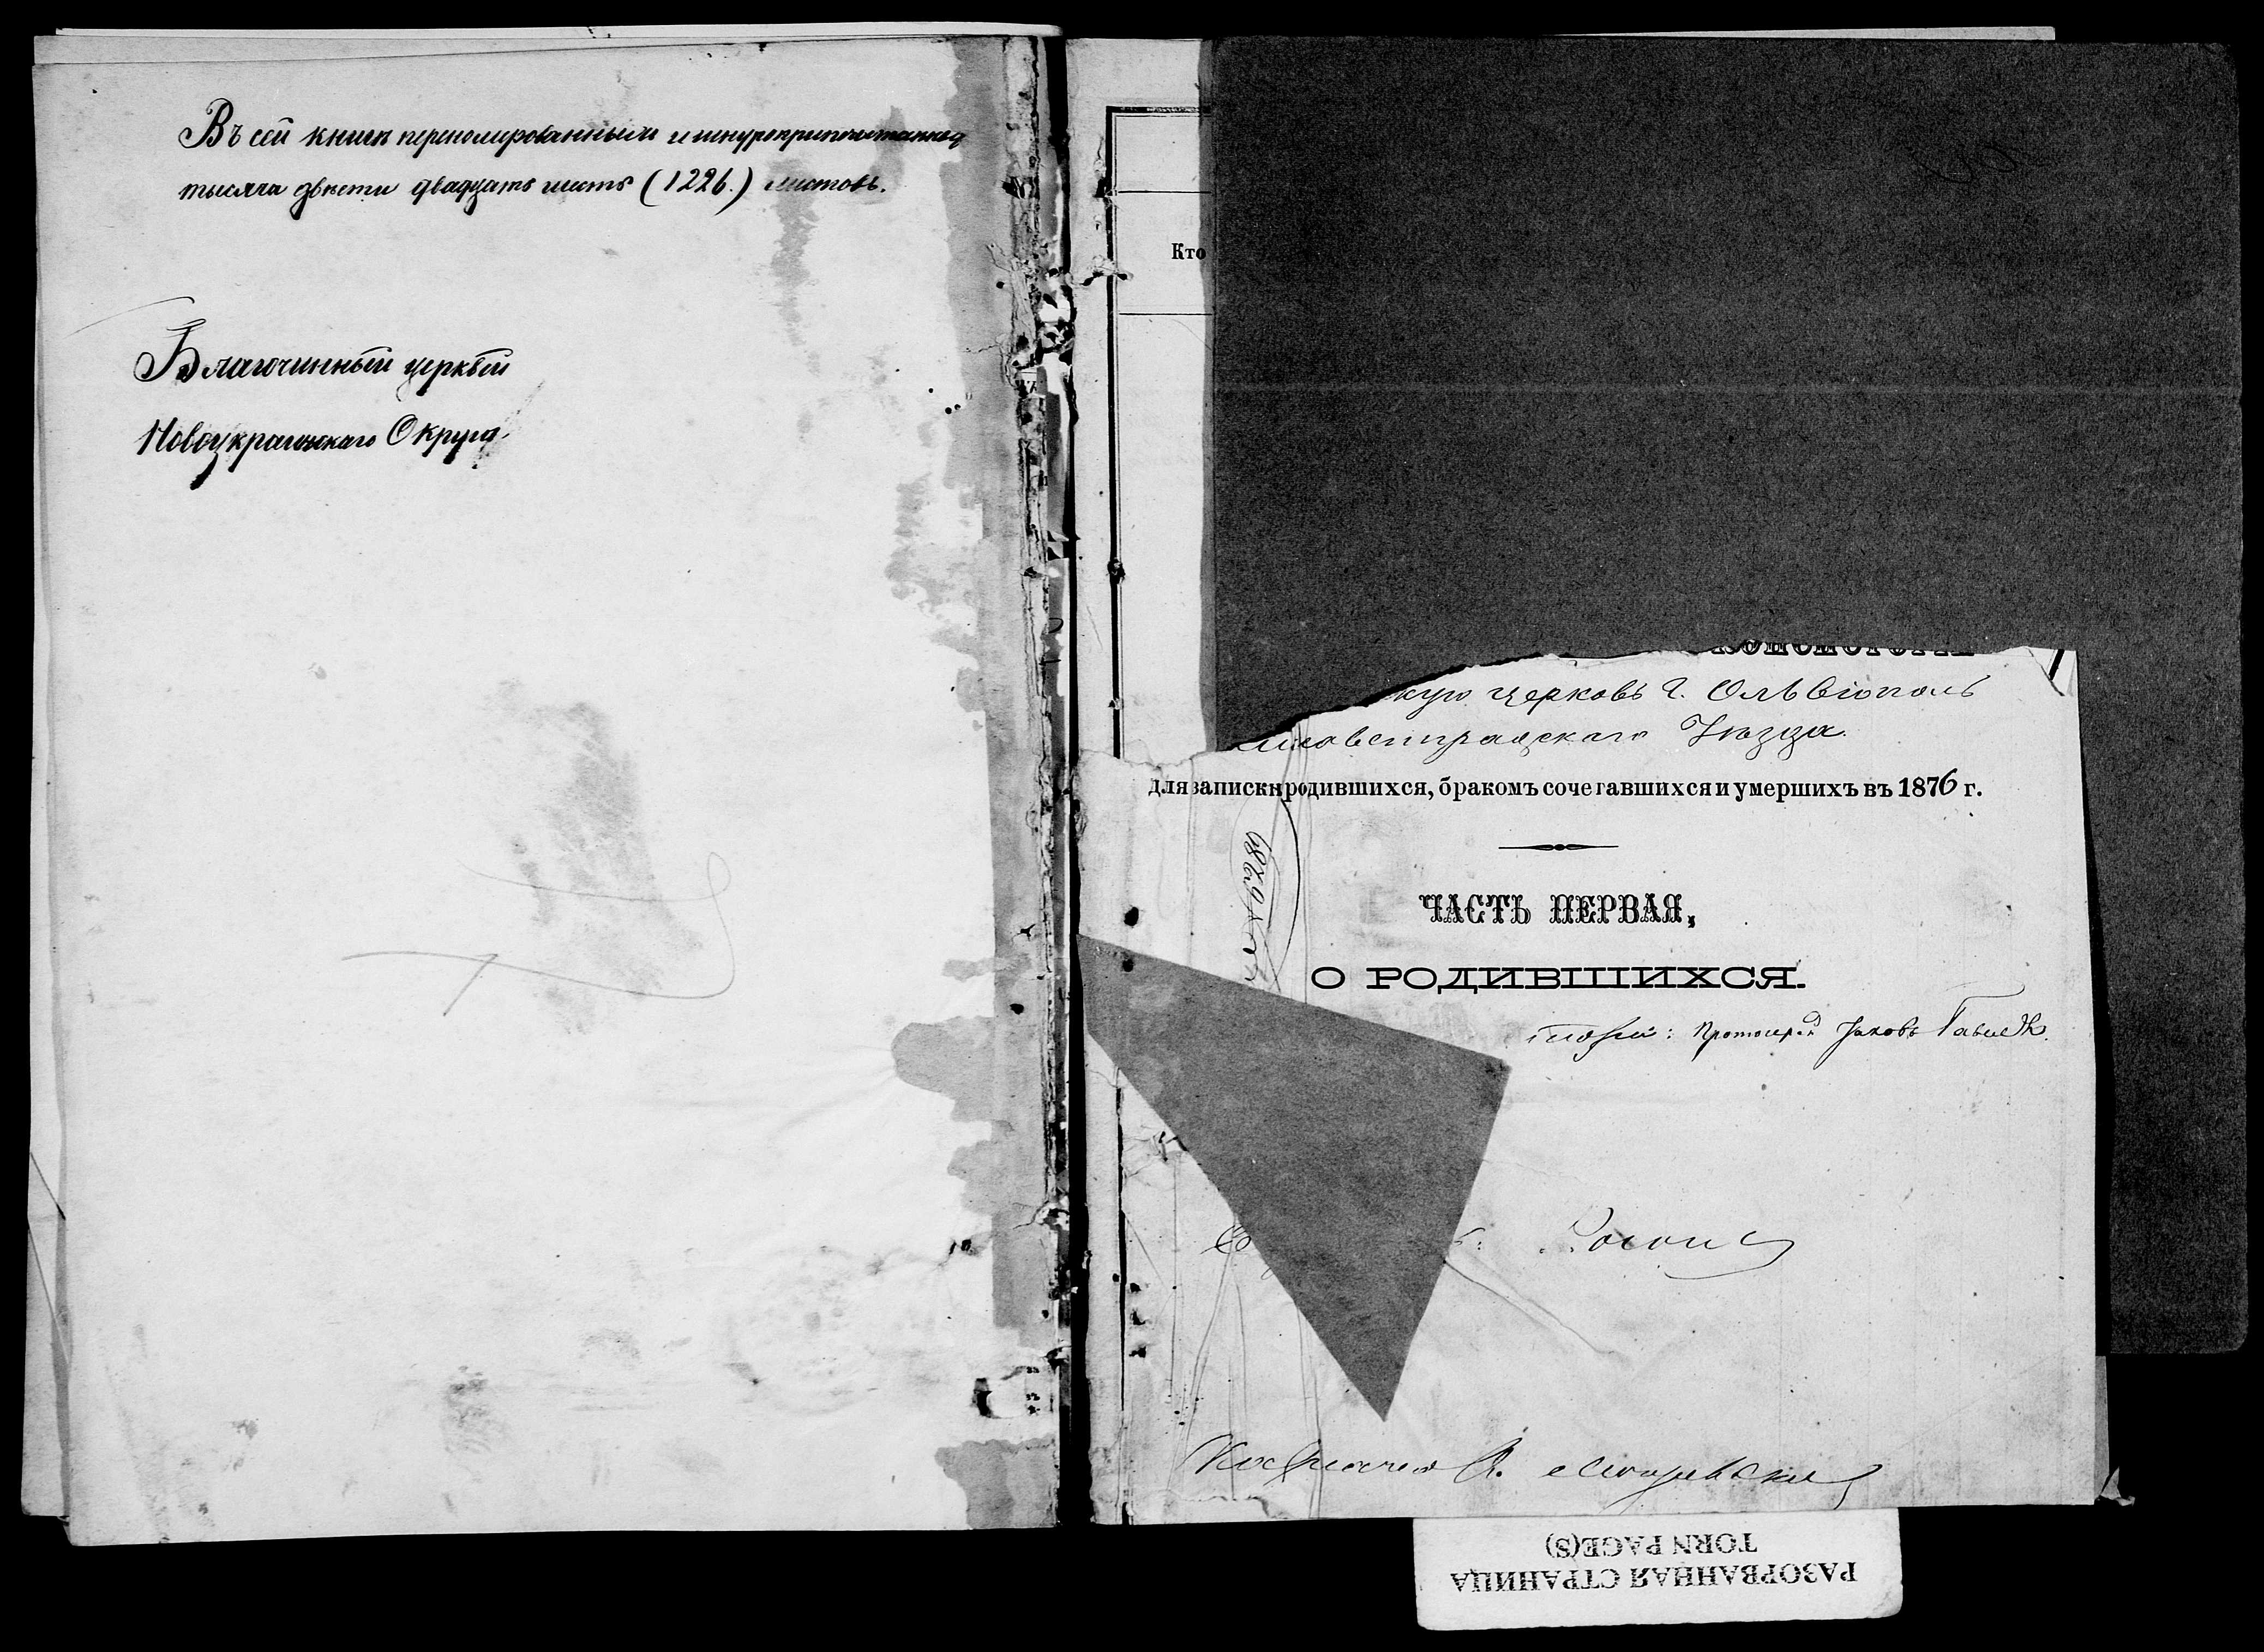 Въ сей книгѣ переномерованныхъ и шнуроприпечатанныхъ
тысяча двѣсти двадцать шесть (1226.) листовъ.
Благочинный церквей
Новоукраинскаго Округа
Кто
консисторіи
кую церковь г. Ольвіополь
Елисаветградскаго Уѣзда.
для записки родившихся, бракомъ сочетавшихся и умершихъ въ 1876 г.
ЧАСТЬ ПЕРВАЯ,
О РОДИВШИХСЯ.
Протоіерей Іаковъ
РАЗОРВАННАЯ СТРАНИЦА
TORN PAGE(S)